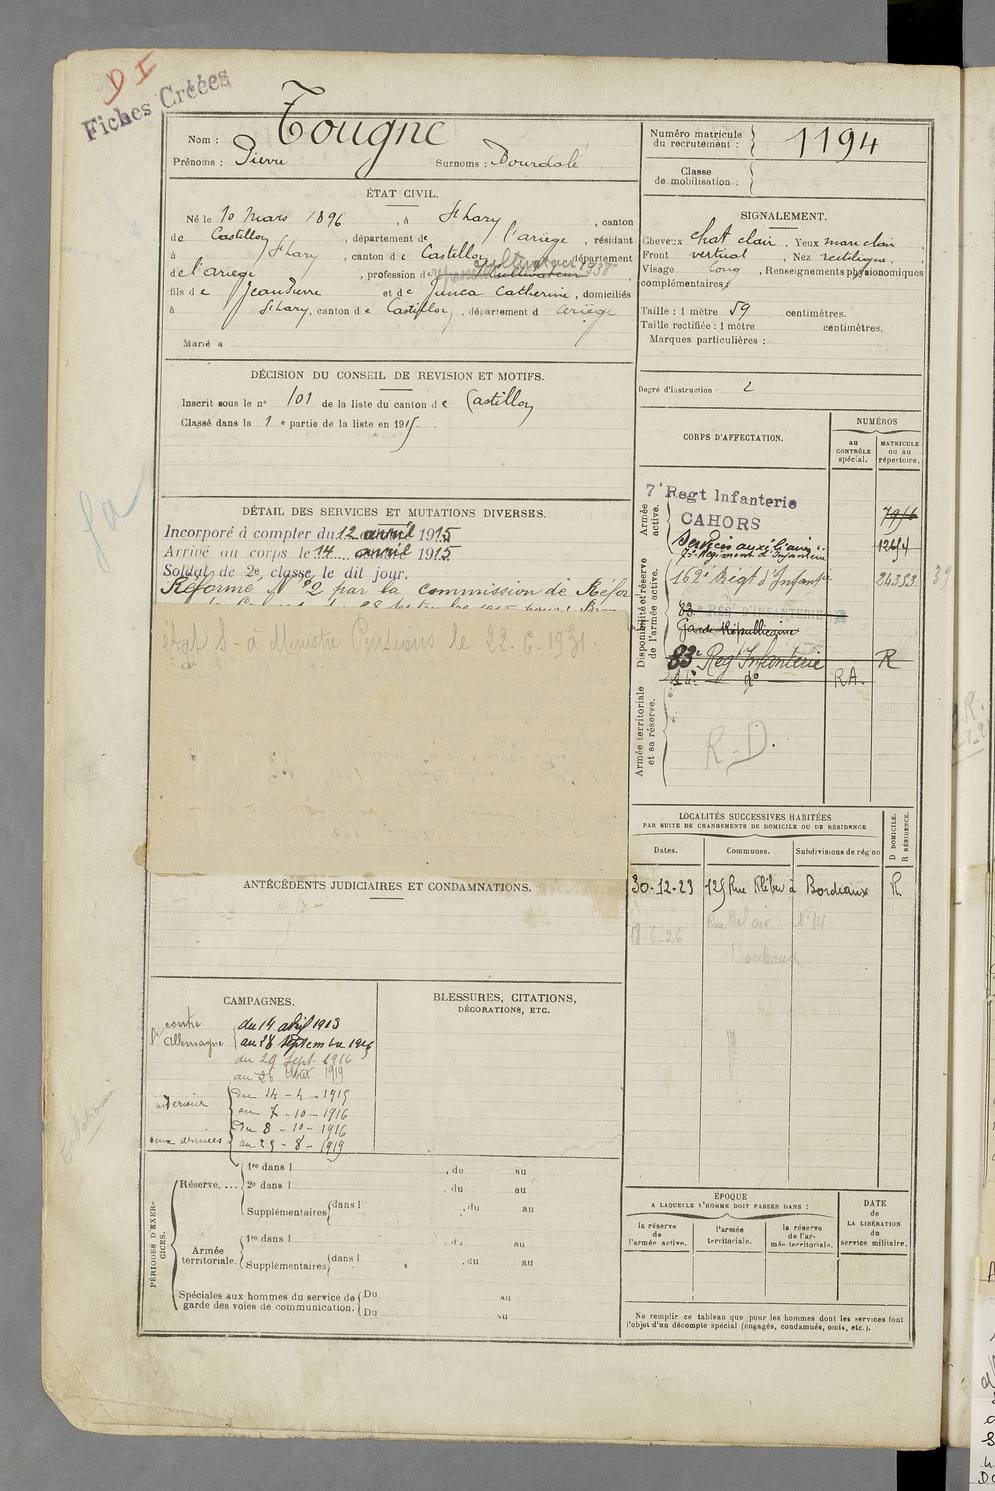 D I
Fiches Créées
Nom : Tougne
Prénoms : Pierre Surnoms : Dourdolé
Numéro matricule du recrutement : 1194
Classe de mobilisation :
ÉTAT CIVIL.
Né le 10 Mars 1896, à St Lary, canton
de Castillon, département de l'ariège, résidant
à St Lary, canton de Castillon, département
de l'ariège, profession de Cultivateur
cultivateur 1938
fils de Jean Pierre et de Junca Catherine, domiciliés
à St Lary, canton de Castillon, département d ariège
Marié à
SIGNALEMENT.
Cheveux chat clair. Yeux mar clair
Front vertical, Nez rectiligne.
Visage long, Renseignements physionomiques
complémentaires
Taille : 1 mètre 59 centimètres.
Taille rectifiée : 1 mètre centimètres.
Marques particulières :
Degré d'instruction : 2
DÉCISION DU CONSEIL DE REVISION ET MOTIFS.
Inscrit sous le n° 101 de la liste du canton de Castillon
Classé dans la 1 e partie de la liste en 1915.
DÉTAIL DES SERVICES ET MUTATIONS DIVERSES.
Incorporé à compter du 12 avril 1915
Arrivé au corps le 14 avril 1915
Soldat de 2e classe le dit jour.
Réformé N° 2 par la commission de Réfor
état s - à Ministre Pensions le 22.6.1931.
CORPS D'AFFECTATION.
NUMÉROS
au CONTRÔLE spécial.
MATRICULE ou au répertoire.
Armée active.
7e Regt Infanterie
CAHORS
Services auxiliaires
7e Régiment d'Infanterie
Disponibilité et réserve de l'armée active.
162e Régt d'Infantie 24352
83e REG. D'INFANTERIE
Garde Républicaine
83e Reg Infanterie R
do RA.
Armée territoriale et sa réserve.
R-D.
LOCALITÉS SUCCESSIVES HABITÉES
PAR SUITE DE CHANGEMENTS DE DOMICILE OU DE RÉSIDENCE
Dates. Communes. Subdivisions de région
D DOMICILE.
R RÉSIDENCE.
30-12-23 125 Rue Kléber à Bordeaux R
18-6-26 Rue Bel air N° 14
Bordeaux
ANTÉCÉDENTS JUDICIAIRES ET CONDAMNATIONS.
CAMPAGNES.
contre l'Allemagne
du 14 avril 1915
au 28 septembre 1916
du 29 sept. 1916
au 26 Août 1919
intérieur
Du 14-4-1915
au 7-10-1916
aux armées
Du 8-10-1916
au 29-8-1919
BLESSURES, CITATIONS,
DÉCORATIONS, ETC.
PÉRIODES D'EXERCICES.
Réserve....
1re dans l , du au
2e dans l , du au
Supplémentaires dans l , du au
Armée territoriale.
1re dans l , du au
Supplémentaires dans l , du au
Spéciales aux hommes du service de garde des voies de communication.
Du au
Du au
ÉPOQUE
A LAQUELLE L'HOMME DOIT PASSER DANS :
la réserve de l'armée active.
l'armée territoriale.
la réserve de l'armée territoriale.
DATE
de
LA LIBÉRATION
du
service militaire.
Ne remplir ce tableau que pour les hommes dont les services font
l'objet d'un décompte spécial (engagés, condamnés, omis, etc.).